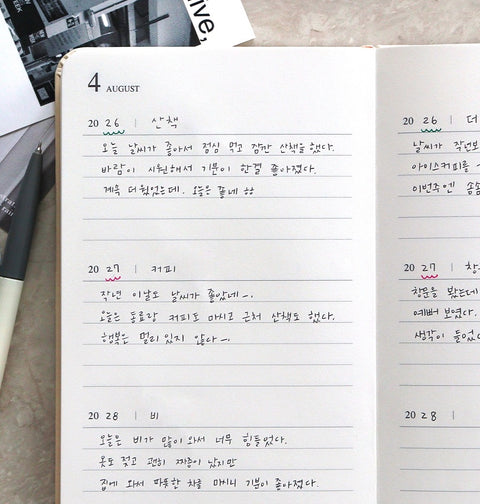 ive,
4 AUGUST
20 26 | 산책
오늘 날씨가 좋아서 점심 먹고 잠깐 산책을 했다.
바람이 시원해서 기분이 한결 좋아졌다.
계속 더웠었는데. 오늘은 좋네 ㅎㅎ
20 27 | 커피
작년 이날도 날씨가 좋았네~.
오늘은 동료랑 커피도 마시고 근처 산책도 했다.
행복은 멀리 있지 않다~.
20 28 | 비
오늘은 비가 많이 와서 너무 힘들었다.
옷도 젖고 괜히 짜증이 났지만
집에 와서 따뜻한 차를 마시니 기분이 좋아졌다.
20 26 | 더
날씨가 작년보
아이스커피를
이번주엔
20 27 | 창
창문을 봤는데
예뻐 보였다.
생각이 들었
20 28 |